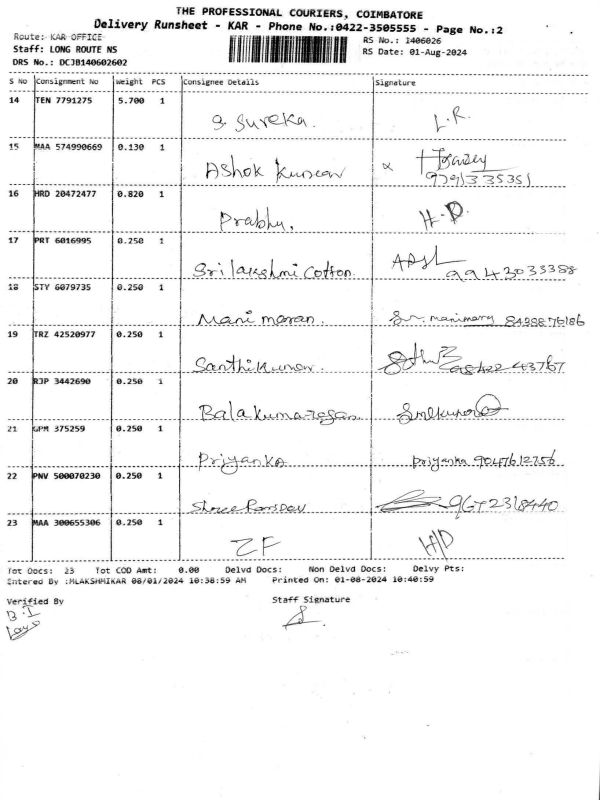 THE PROFESSIONAL COURIERS, COIMBATORE
Delivery Runsheet - KAR - Phone No.:0422-3505555 - Page No.:2
Route: KAR OFFICE
RS No.: 1406026
Staff: LONG ROUTE NS
RS Date: 01-Aug-2024
DRS No.: DCJB140602602
S No Consignment No Weight PCS Consignee Details Signature
14 TEN 7791275 5.700 1
S. Sureka. L.R.
15 MAA 574990669 0.130 1
Ashok Kumar
9791335351
16 HRD 20472477 0.820 1
Prabhu. H.D.
17 PRT 6016995 0.250 1
Sri lakshmi Cotton 9943033388
18 STY 6079735 0.250 1
Mani maran.
19 TRZ 42520977 0.250 1
Santhikumar 98422 43767
20 RJP 3442690 0.250 1
Balakumaresan
21 GPM 375259 0.250 1
Priyanka priyanka 9047612756
22 PNV 500070230 0.250 1
23 MAA 300655306 0.250 1
ZF H/D
Tot Docs: 23 Tot COD Amt: 0.00 Delvd Docs: Non Delvd Docs: Delvy Pts:
Entered By :MLAKSHMIKAR 08/01/2024 10:38:59 AM Printed On: 01-08-2024 10:40:59
Verified By Staff Signature